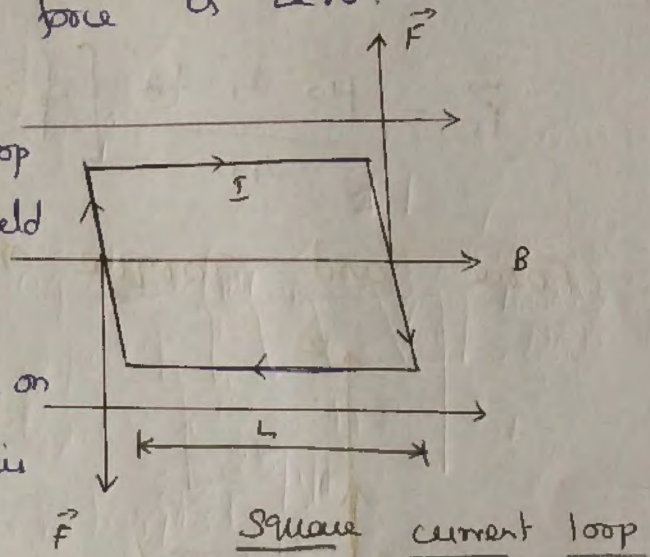 force is zero.
F
op
I
eld
B
on
L
is
F
Square current loop